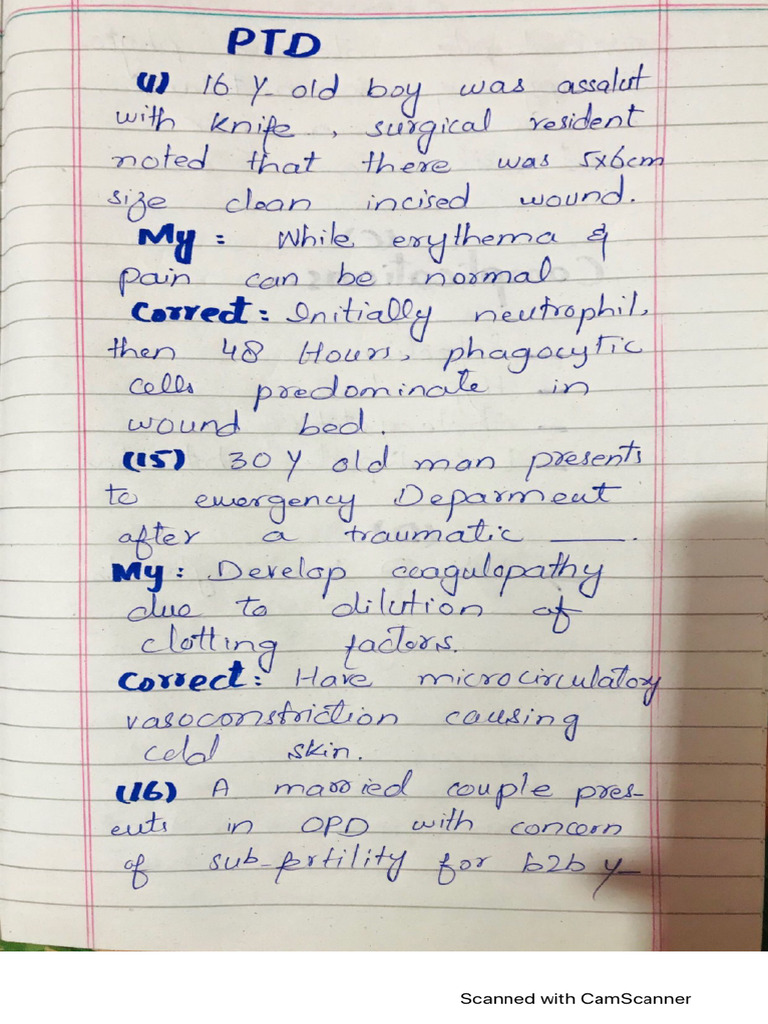 PTD
(1) 16 Y- old boy was assalut
with knife, surgical resident
noted that there was 5x6cm
size clean incised wound.
My: While erythema &
pain can be normal
Correct: Initially neutrophil,
then 48 Hours, phagocytic
cells predominate in
wound bed.
(15) 30 Y old man presents
to emergency Deparment
after a traumatic ____.
My: Develop coagulopathy
due to dilution of
clotting factors.
Correct: Have microcirculatory
vasoconstriction causing
cold skin.
(16) A married couple pres-
ents in OPD with concern
of sub-frtility for b2b y-
Scanned with CamScanner